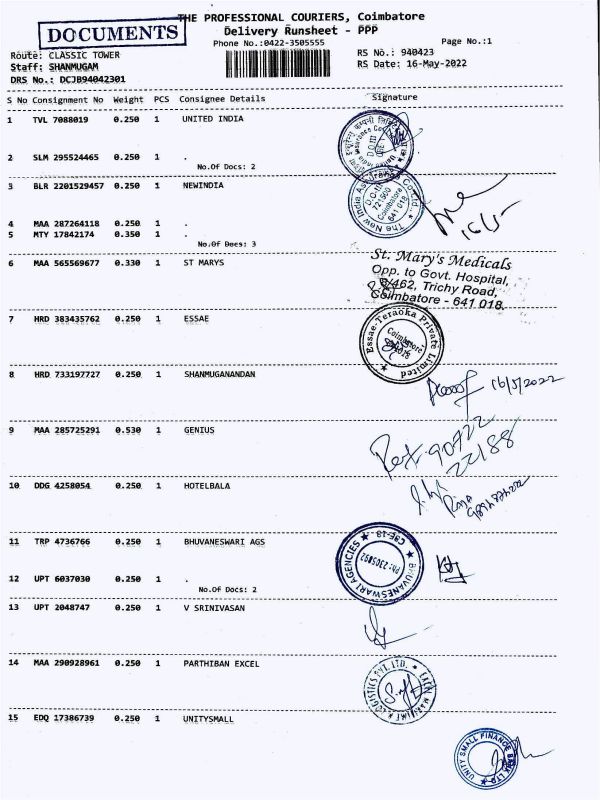 DOCUMENTS
THE PROFESSIONAL COURIERS, Coimbatore
Delivery Runsheet - PPP
Phone No.:0422-3505555
Page No.:1
Route: CLASSIC TOWER
RS No.: 940423
Staff: SHANMUGAM
RS Date: 16-May-2022
DRS No.: DCJB94042301
S No Consignment No Weight PCS Consignee Details Signature
1 TVL 7088019 0.250 1 UNITED INDIA
2 SLM 295524465 0.250 1 .
No.Of Docs: 2
3 BLR 2201529457 0.250 1 NEWINDIA
The New India Co.Ltd.
D.O.III
721500
Coimbatore
641 018
16/5
4 MAA 287264118 0.250 1 .
5 MTY 17842174 0.350 1 .
No.Of Docs: 3
6 MAA 565569677 0.330 1 ST MARYS
St. Mary's Medicals
Opp. to Govt. Hospital,
/462, Trichy Road,
Coimbatore - 641 018.
7 HRD 383435762 0.250 1 ESSAE
Essae-Teraoka Private Limited
Coimbatore
8 HRD 733197727 0.250 1 SHANMUGANANDAN
16/5/2022
9 MAA 285725291 0.530 1 GENIUS
90722
22188
10 DDG 4258054 0.250 1 HOTELBALA
11 TRP 4736766 0.250 1 BHUVANESWARI AGS
BHUVANESWARI AGENCIES ★ CBE-18 ★
Ph: 2305892
12 UPT 6037030 0.250 1 .
No.Of Docs: 2
13 UPT 2048747 0.250 1 V SRINIVASAN
14 MAA 290928961 0.250 1 PARTHIBAN EXCEL
LOGISTICS PVT. LTD.
15 EDQ 17386739 0.250 1 UNITYSMALL
UNITY SMALL FINANCE BANK LTD